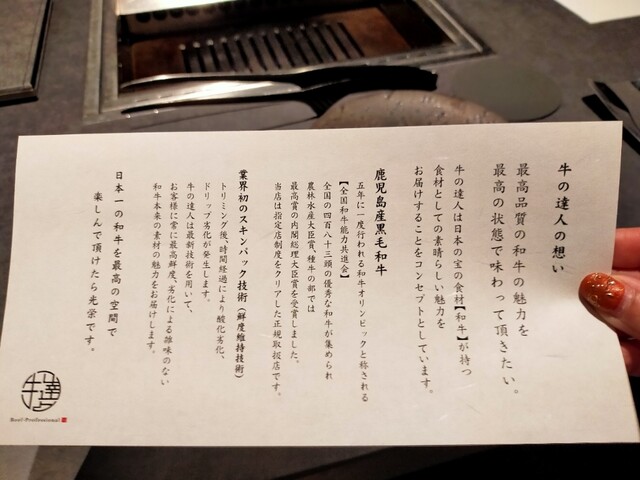 牛の達人の想い
最高品質の和牛の魅力を
最高の状態で味わって頂きたい。
牛の達人は日本の宝の食材【和牛】が持つ
食材としての素晴らしい魅力を
お届けすることをコンセプトとしています。
鹿児島産黒毛和牛
五年に一度行われる和牛オリンピックと称される
【全国和牛能力共進会】
全国の四百八十三頭の優秀な和牛が集められ
農林水産大臣賞、種牛の部では
最高賞の内閣総理大臣賞を受賞しました。
当店は指定店制度をクリアした正規取扱店です。
業界初のスキンパック技術（鮮度維持技術）
トリミング後、時間経過により酸化劣化、
ドリップ劣化が発生します。
牛の達人は最新技術を用いて、
お客様に常に最高鮮度、劣化による雑味のない
和牛本来の素材の魅力をお届けします。
日本一の和牛を最高の空間で
楽しんで頂けたら光栄です。
牛達
Beef Professional